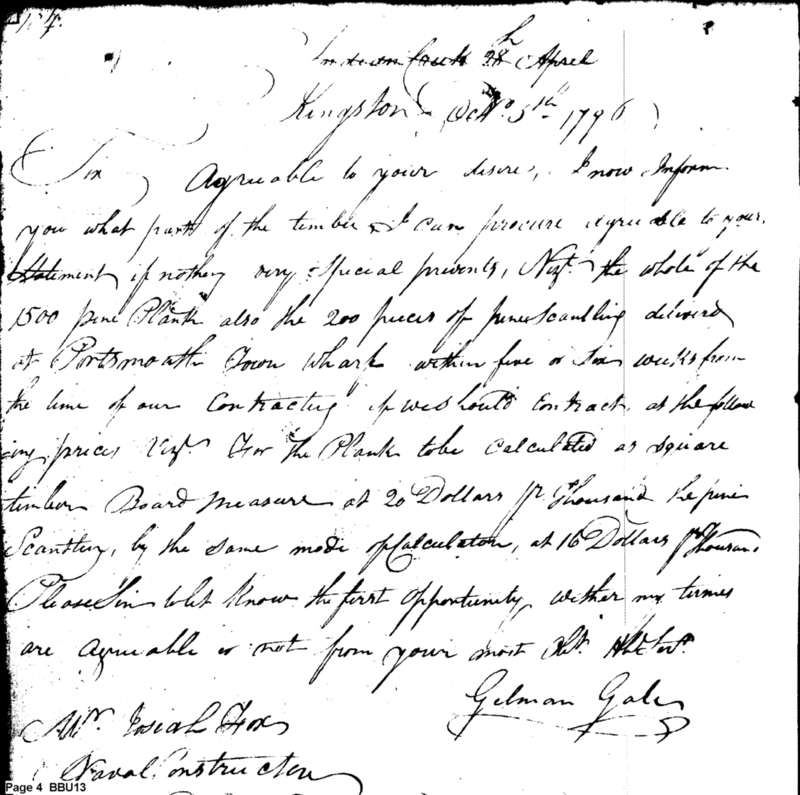 Indian Creek 28th April
Kingston Octo. 5th 1796
Sir Agreeable to your desire, I now Inform
you what parts of the timber I can procure agreeable to your
Statement if nothing very special prevents, Vizt. the whole of the
1500 pine Plank also the 200 pieces of pine scantling delivered
at Portsmouth Town Wharf within five or six weeks from
the time of our Contracting if we should contract at the follow
ing prices Vizt. For the Plank to be Calculated as square
timber Board measure at 20 Dollars pr. thousand the pine
Scantling, by the same mode of Calculation, at 16 Dollars pr. Thousand
Please Sir to let know the first Opportunity wether my termes
are agreeable or not from your most Obt. Hble Servt.
Gilman Gale
Mr. Josiah Fox
Naval Constructor
Page 4 BBU13